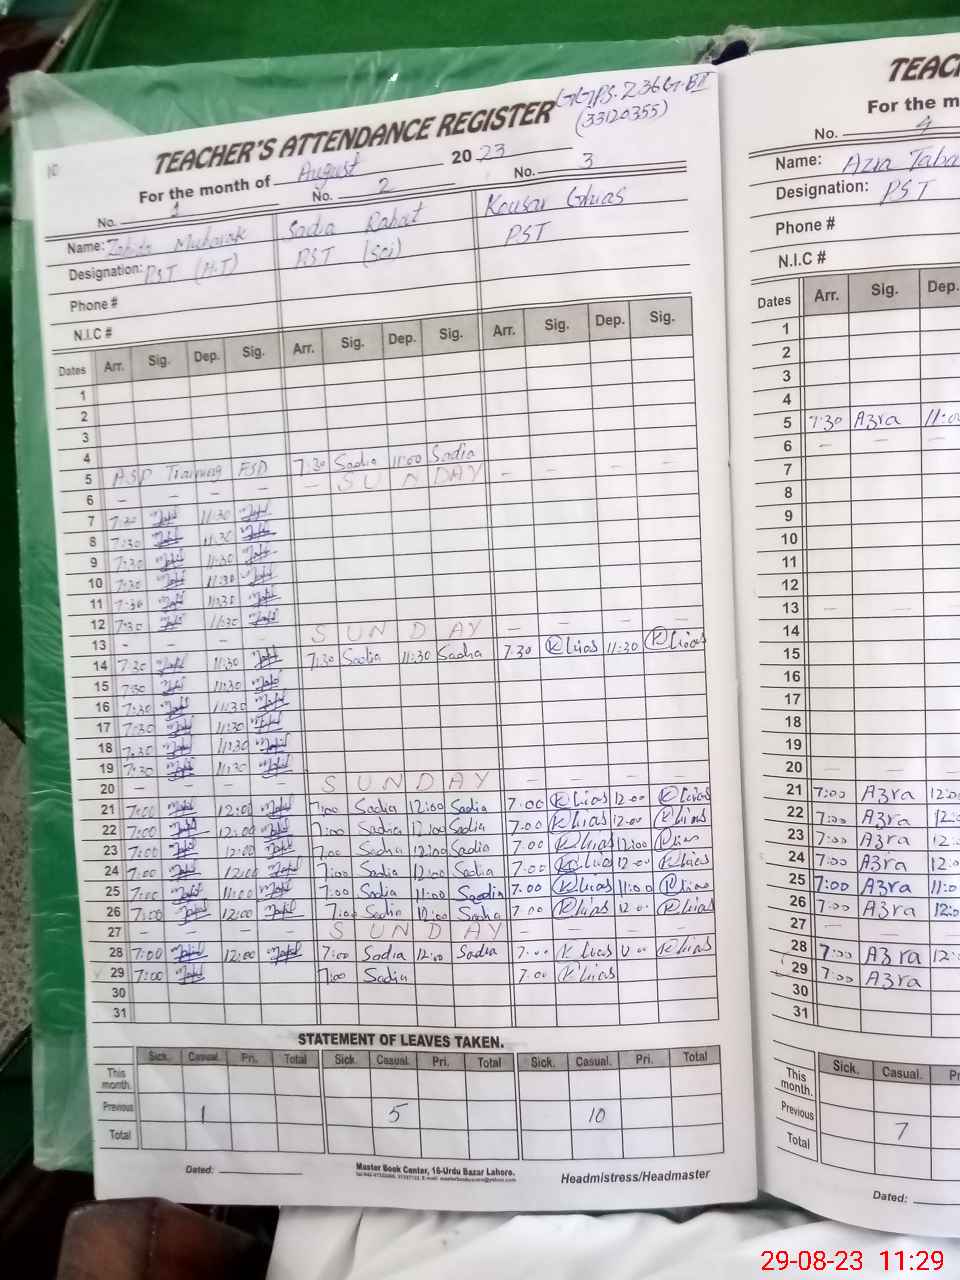 10
GGPS. 236 GB II
(33120355)
TEACHER'S ATTENDANCE REGISTER
For the month of August 2023
No. 1 No. 2 No. 3
Name: Zahida Mubarak Sadia Rahat Kousar Ghias
Designation: PST (H.T) PST (Sci) PST
Phone #
N.I.C #
Dates Arr. Sig. Dep. Sig. Arr. Sig. Dep. Sig. Arr. Sig. Dep. Sig.
1
2
3
4
5 ASP Training FSD 7:30 Sadia 11:00 Sadia
6 - - - - - SUNDAY - - - -
7 7:30 11:30
8 7:30 11:30
9 7:30 11:30
10 7:30 11:30
11 7:30 11:30
12 7:30 11:30
13 - - - SUNDAY - - - -
14 7:30 11:30 7:30 Sadia 11:30 Sadia 7.30 K Lias 11:30 K Lias
15 7:30 11:30
16 7:30 11:30
17 7:30 11:30
18 7:30 11:30
19 7:30 11:30
20 - - - - SUNDAY - - - -
21 7:00 12:00 7:00 Sadia 12:00 Sadia 7.00 K Lias 12.00 K Lias
22 7:00 12:00 7:00 Sadia 12:00 Sadia 7.00 K Lias 12.00 K Lias
23 7:00 12:00 7:00 Sadia 12:00 Sadia 7.00 K Lias 12:00 K Lias
24 7:00 12:00 7:00 Sadia 12:00 Sadia 7.00 K Lias 12.00 K Lias
25 7:00 11:00 7:00 Sadia 11:00 Sadia 7.00 K Lias 11:00 K Lias
26 7:00 12:00 7:00 Sadia 12:00 Sadia 7.00 K Lias 12.00 K Lias
27 - - - - SUNDAY - - - -
28 7:00 12:00 7:00 Sadia 12:00 Sadia 7.00 K Lias K Lias
29 7:00 7:00 Sadia 7.00 K Lias
30
31
STATEMENT OF LEAVES TAKEN.
Sick. Casual. Pri. Total Sick. Casual. Pri. Total Sick. Casual. Pri. Total
This month.
Previous 1 5 10
Total
Dated:
Master Book Center, 16-Urdu Bazar Lahore.
Headmistress/Headmaster
TEAC
For the m
No. 4
Name: Azra Taba
Designation: PST
Phone #
N.I.C #
Dates Arr. Sig. Dep.
1
2
3
4
5 7:30 Azra 11:00
6 - - -
7
8
9
10
11
12
13 - - -
14
15
16
17
18
19
20 - - -
21 7:00 Azra 12:0
22 7:00 Azra 12:
23 7:00 Azra 12:
24 7:00 Azra 12:
25 7:00 Azra 11:0
26 7:00 Azra 12:
27 - - -
28 7:00 Azra 12:
29 7:00 Azra
30
31
Sick. Casual. Pr
This month.
Previous 7
Total
Dated:
29-08-23 11:29